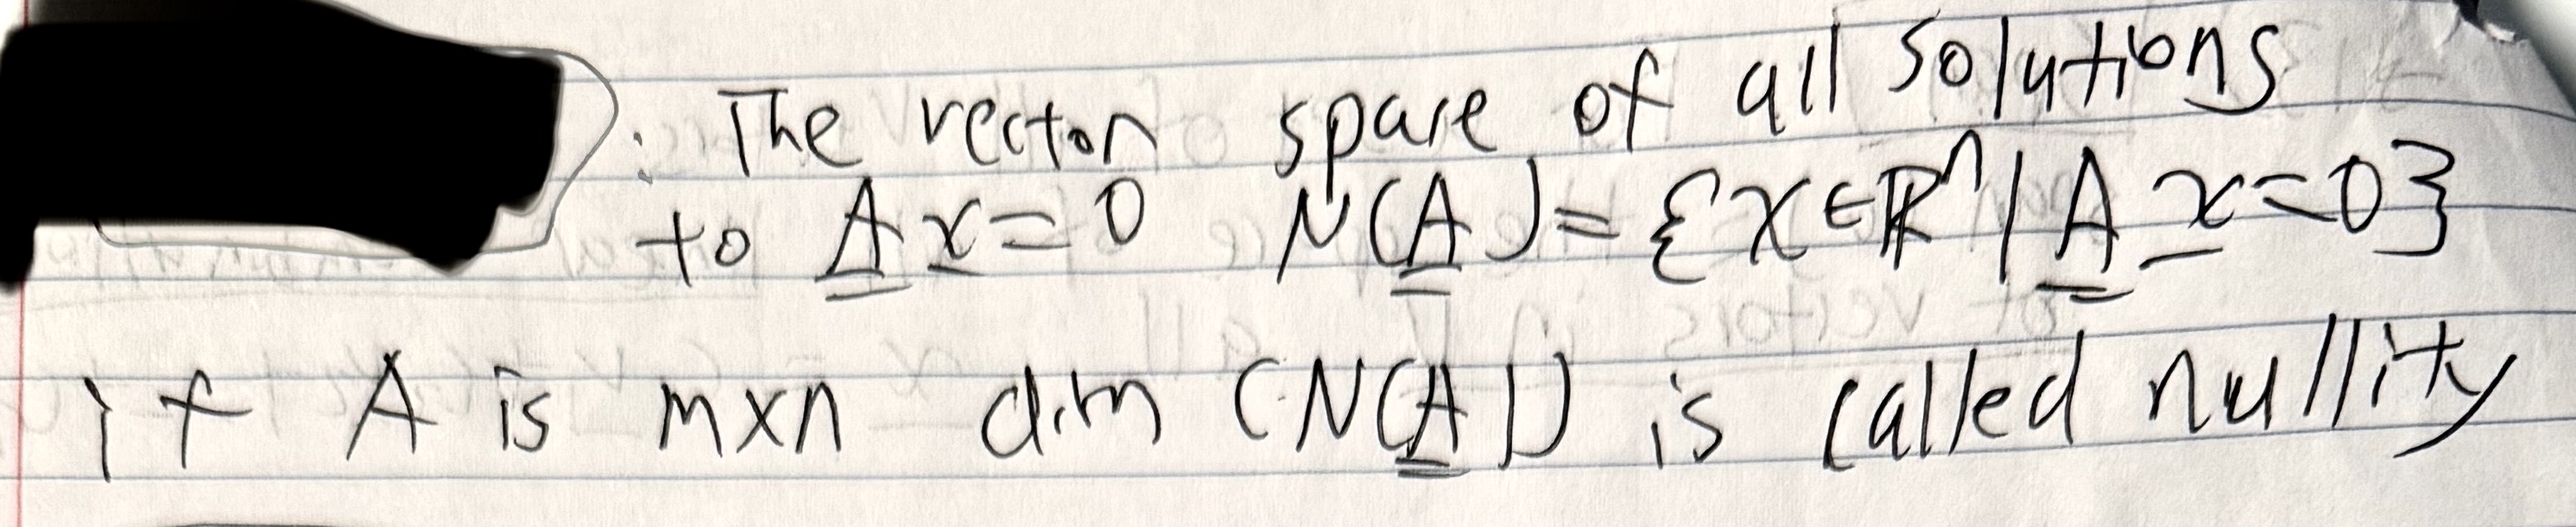 : The vector space of all solutions
to A x = 0 N(A) = {x ∈ ℝⁿ | A x = 0}
if A is mxn dim (N(A)) is called nullity